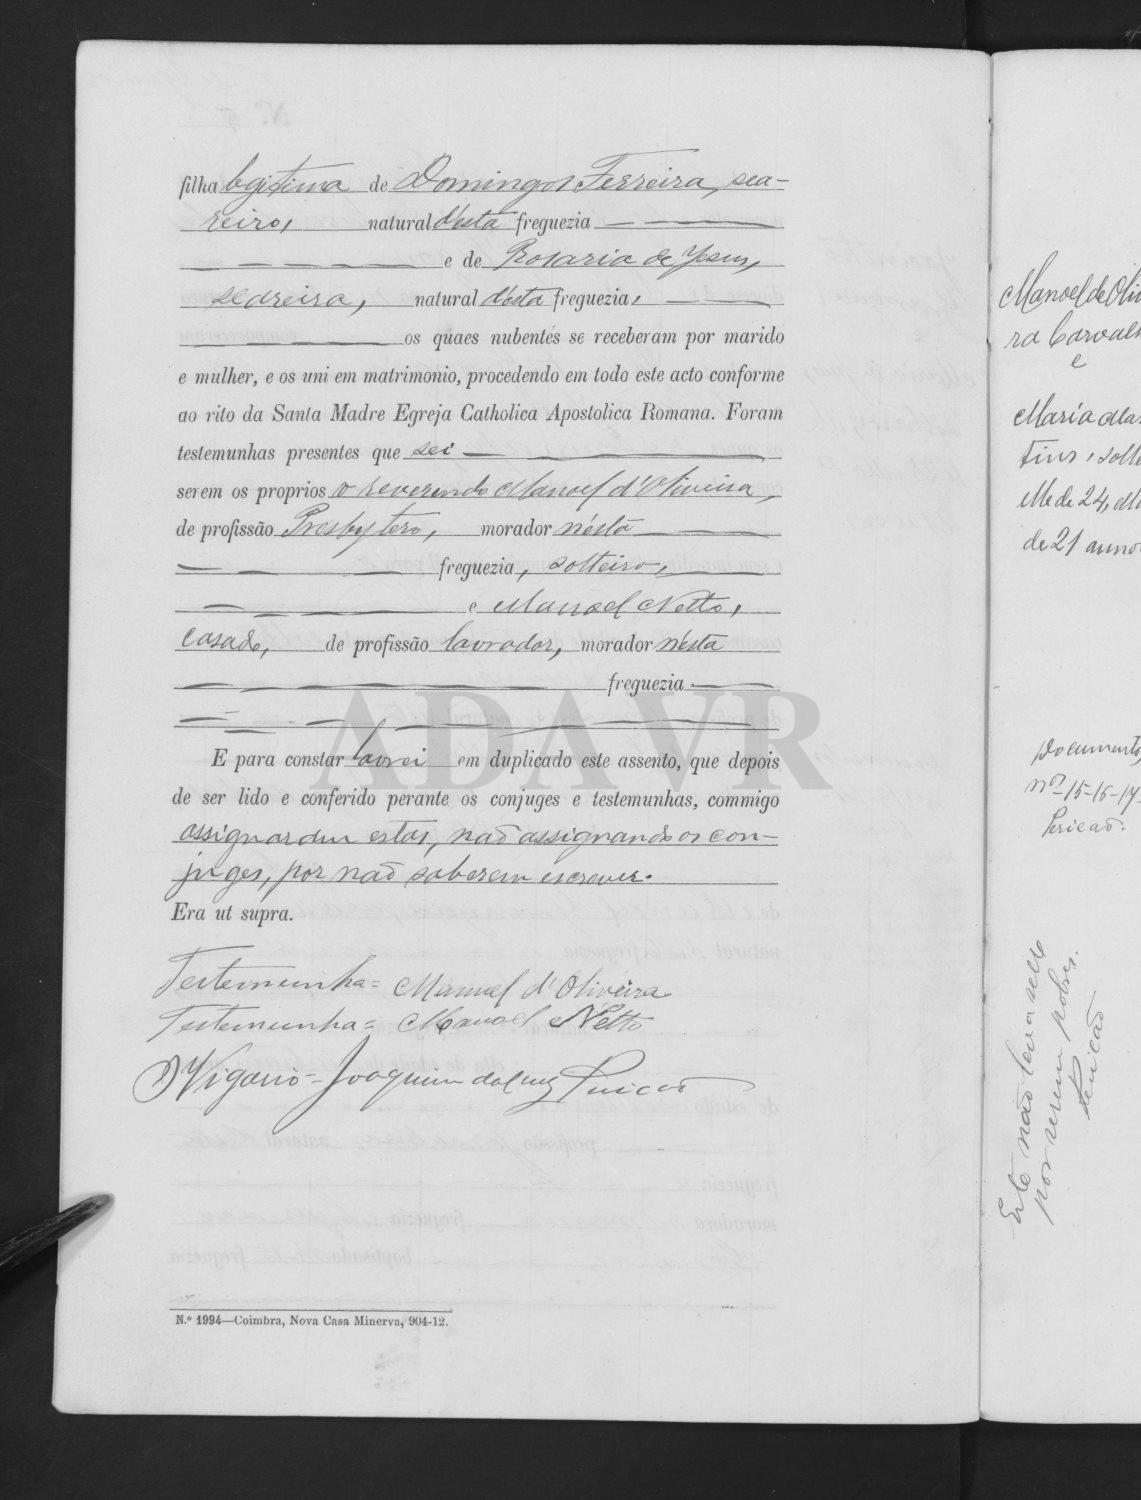 filha legitima de Domingos Ferreira, sea-
reiro, natural d'esta freguezia
e de Rosaria de Jesus,
seareira, natural d'esta freguezia,
os quaes nubentes se receberam por marido
e mulher, e os uni em matrimonio, procedendo em todo este acto conforme
ao rito da Santa Madre Egreja Catholica Apostolica Romana. Foram
testemunhas presentes que sei
serem os proprios o reverendo Manoel d'Oliveira,
de profissão Presbytero, morador n'ésta
freguezia, solteiro,
e Manoel Netto,
casado, de profissão lavrador, morador n'ésta
freguezia
ADAVR
E para constar lavrei em duplicado este assento, que depois
de ser lido e conferido perante os conjuges e testemunhas, commigo
assignaram estas, não assignando os con-
juges, por não saberem escrever.
Era ut supra.
Testemunha = Manuel d'Oliveira
Testemunha = Manoel Netto
O Vigario = Joaquim da Cruz Pericão
N.º 1994—Coimbra, Nova Casa Minerva, 904-12.
Manoel de Olivei
ra Carvalh
e
Maria Mar
tins, solte
Elle de 24,
de 21 annos
Documentos
nos 15-16-17-
Pericão.
Este não leva sello
por serem pobres.
Pericão